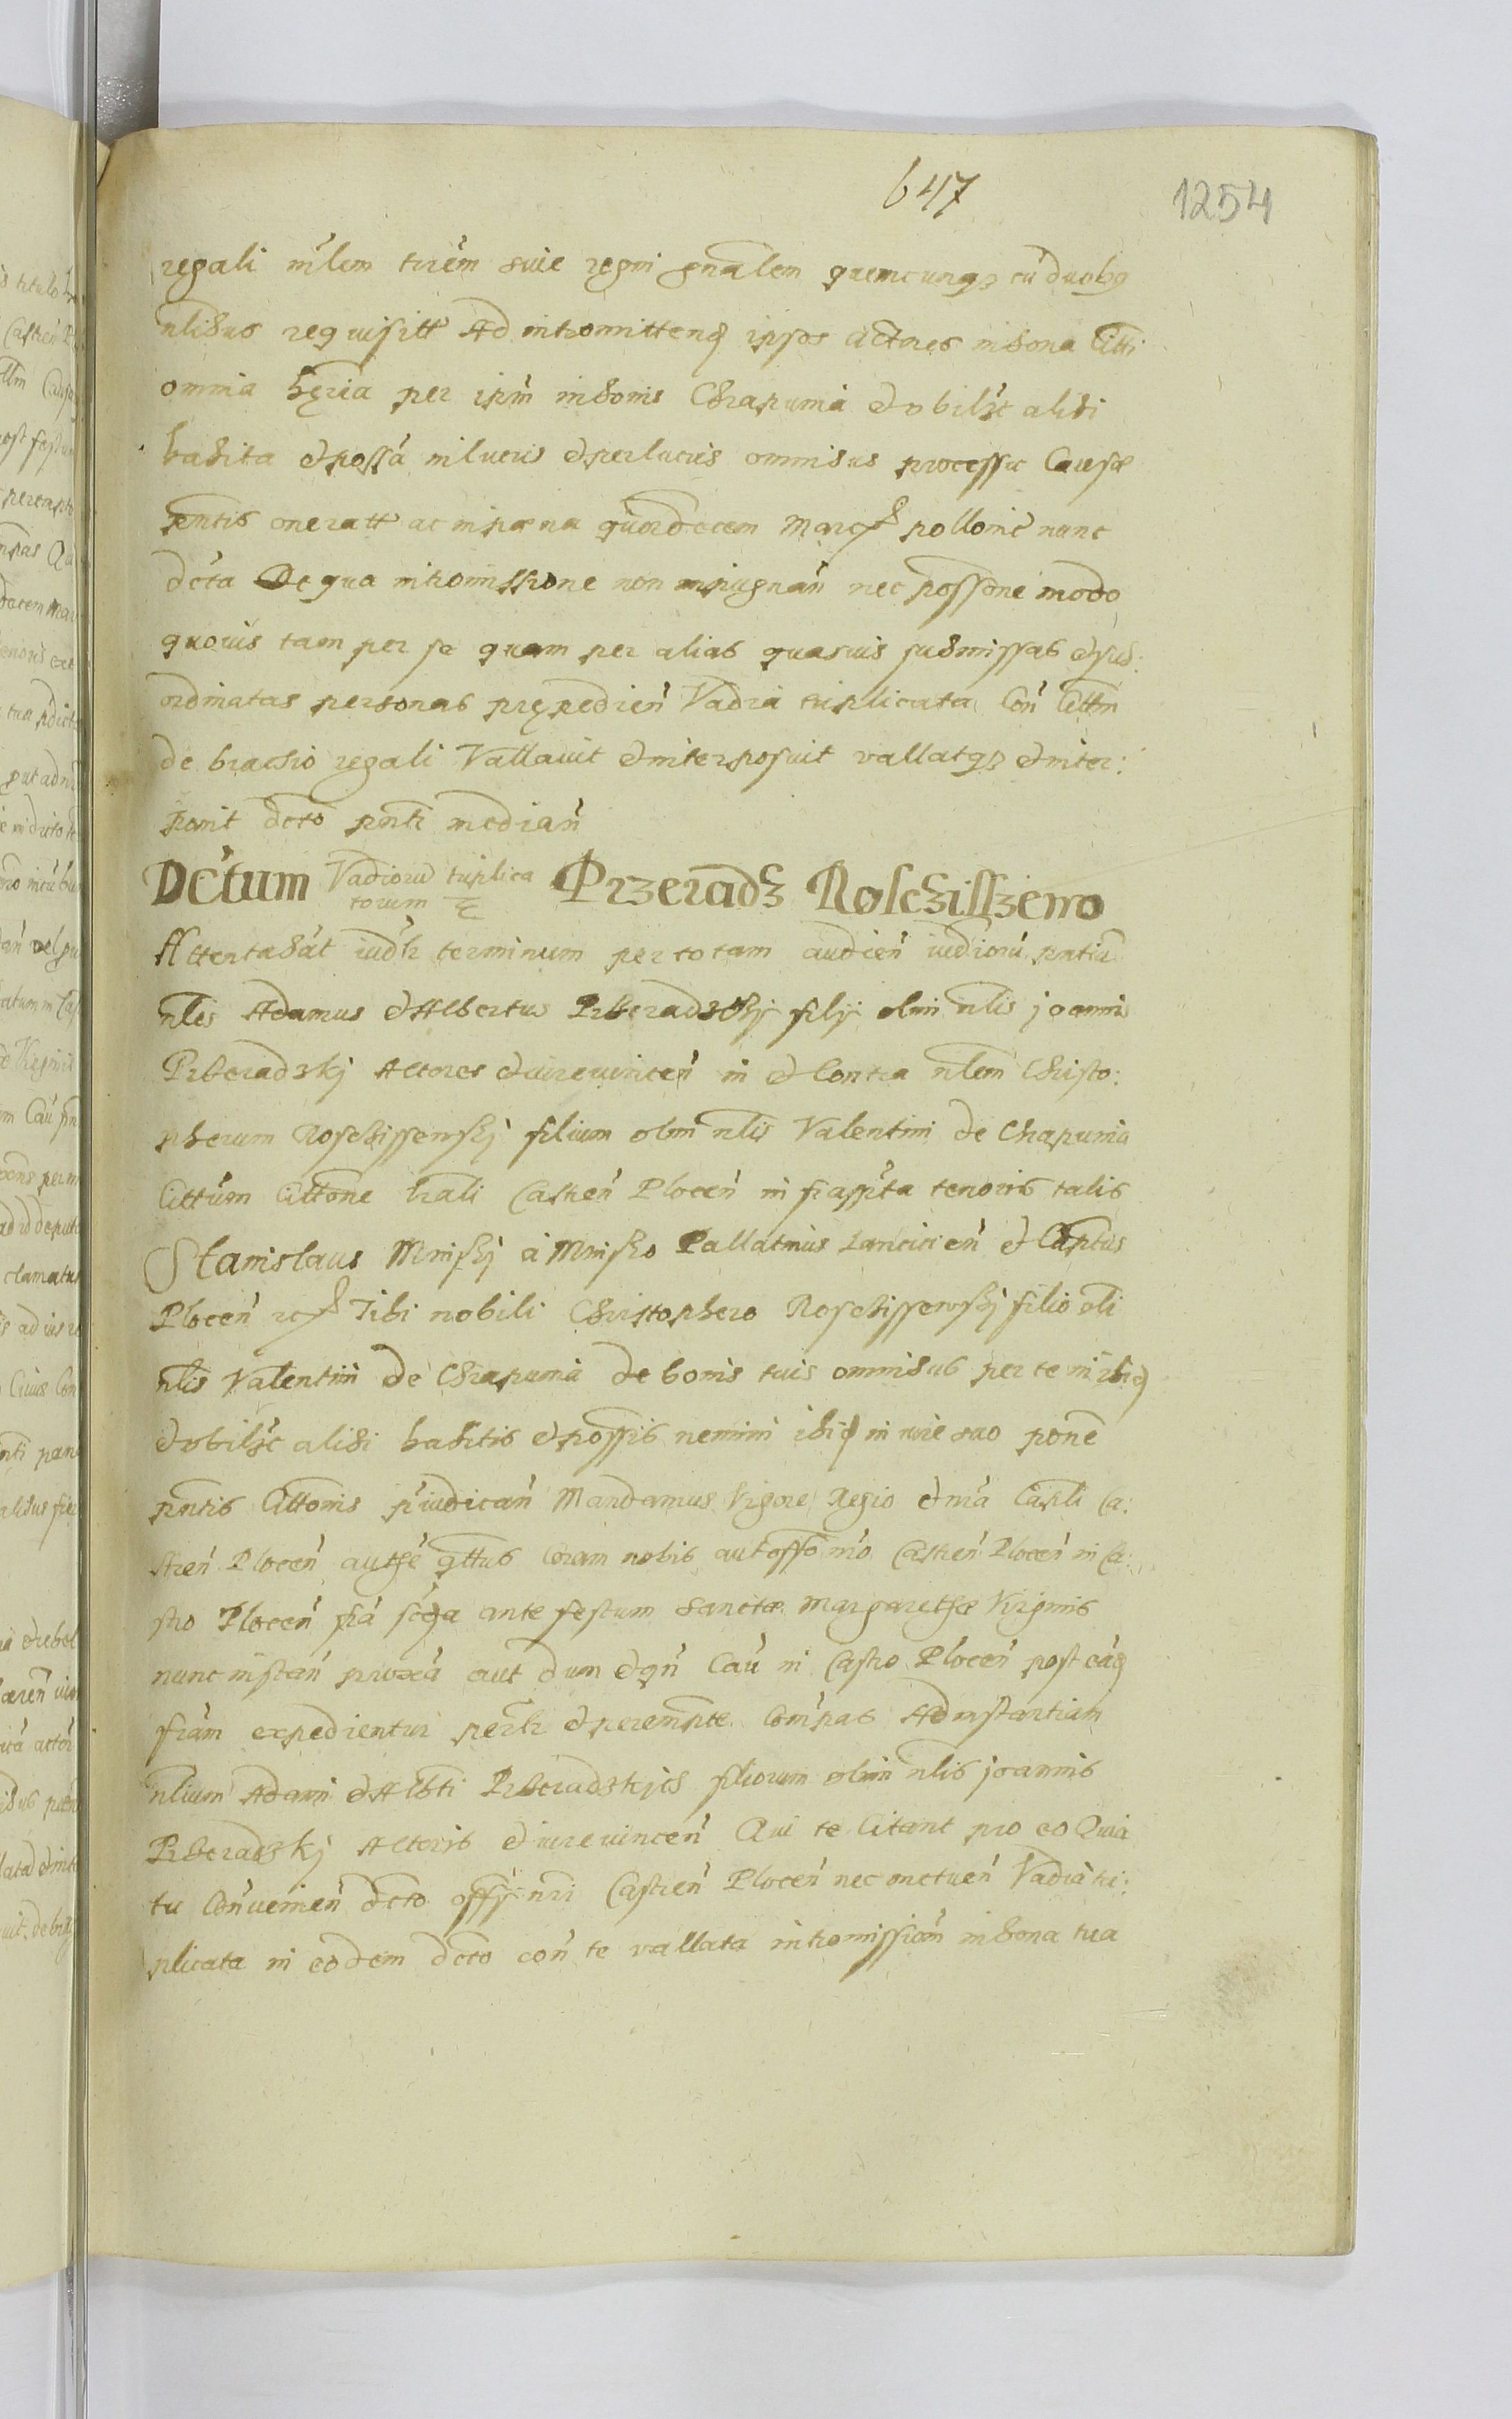 647
1254
regali mlem trem sive regni gnalem quemcunqз cu duobq
nlibus requisitt Ad intromittend ipsos Actores in bona Citti
omnia hęria per ipm in bonis Chrapunia et vbilзt alibi
habita et possa in lucris et perlucris omnibus processu Causæ
pntis oneratt ac in pæna quordecem marcf pollonic nunc
dcta De qua intromissione non impugnan nec possone modo
quovis tam per se quam per alias quasvis submissas et sub:
ordinatas personas prępedien Vadia triplicata Con Cittm
de brachio regali Vallavit et interposuit vallatqз et inter:
ponit dcto pnti median
Dctum Vadioru triplica
torum Przeradз Rosciszewo
Attentabat iudlr terminum per totam audien iudioru pntiu
nles Adamus et Albertus Przeradzskij filij olim nlis joannis
Przeradzskj Actores et iurevincen in et Contra nlem Christo:
pherum Roschissewskj filium olim nlis Valentini de Chrapunia
Cittum Cittone trali Castren Plocen infrascpta tenoris talis
Stanislaus Minskj a Minsko Pallatinus Lancicien et Captus
Plocen rcf Tibi nobili Christophero Roschissewskj filio oli
nlis Valentini de Chrapunia de bonis tuis omnibus per te in ibid
et vbilзt alibi habitis et possis nemini ibid in iure suo pone
pntis Cittonis piudican Mandamus Vigore Regio et nra Captli Ca:
stren Plocen authe qttus Coram nobis aut offo nro Castren Plocen in Ca:
stro Plocen fra scda ante festum Sanctæ Margarethæ Virginis
nunc instan proxa aut dum et qn Cau in Castro Plocen post eaq
fram expedientur perlr et perempte Compas Ad instantiam
nlium Adami et Albti Przeradzskjcs filiorum olim nlis joannis
Przeradzskj Actoris et iurevincen Qui te Citant pro eo Quia
tu Convenien dcto offij nri Castren Plocen nec metuen Vadia tri:
plicata in eodem dcto con te vallata intromission in bona tua